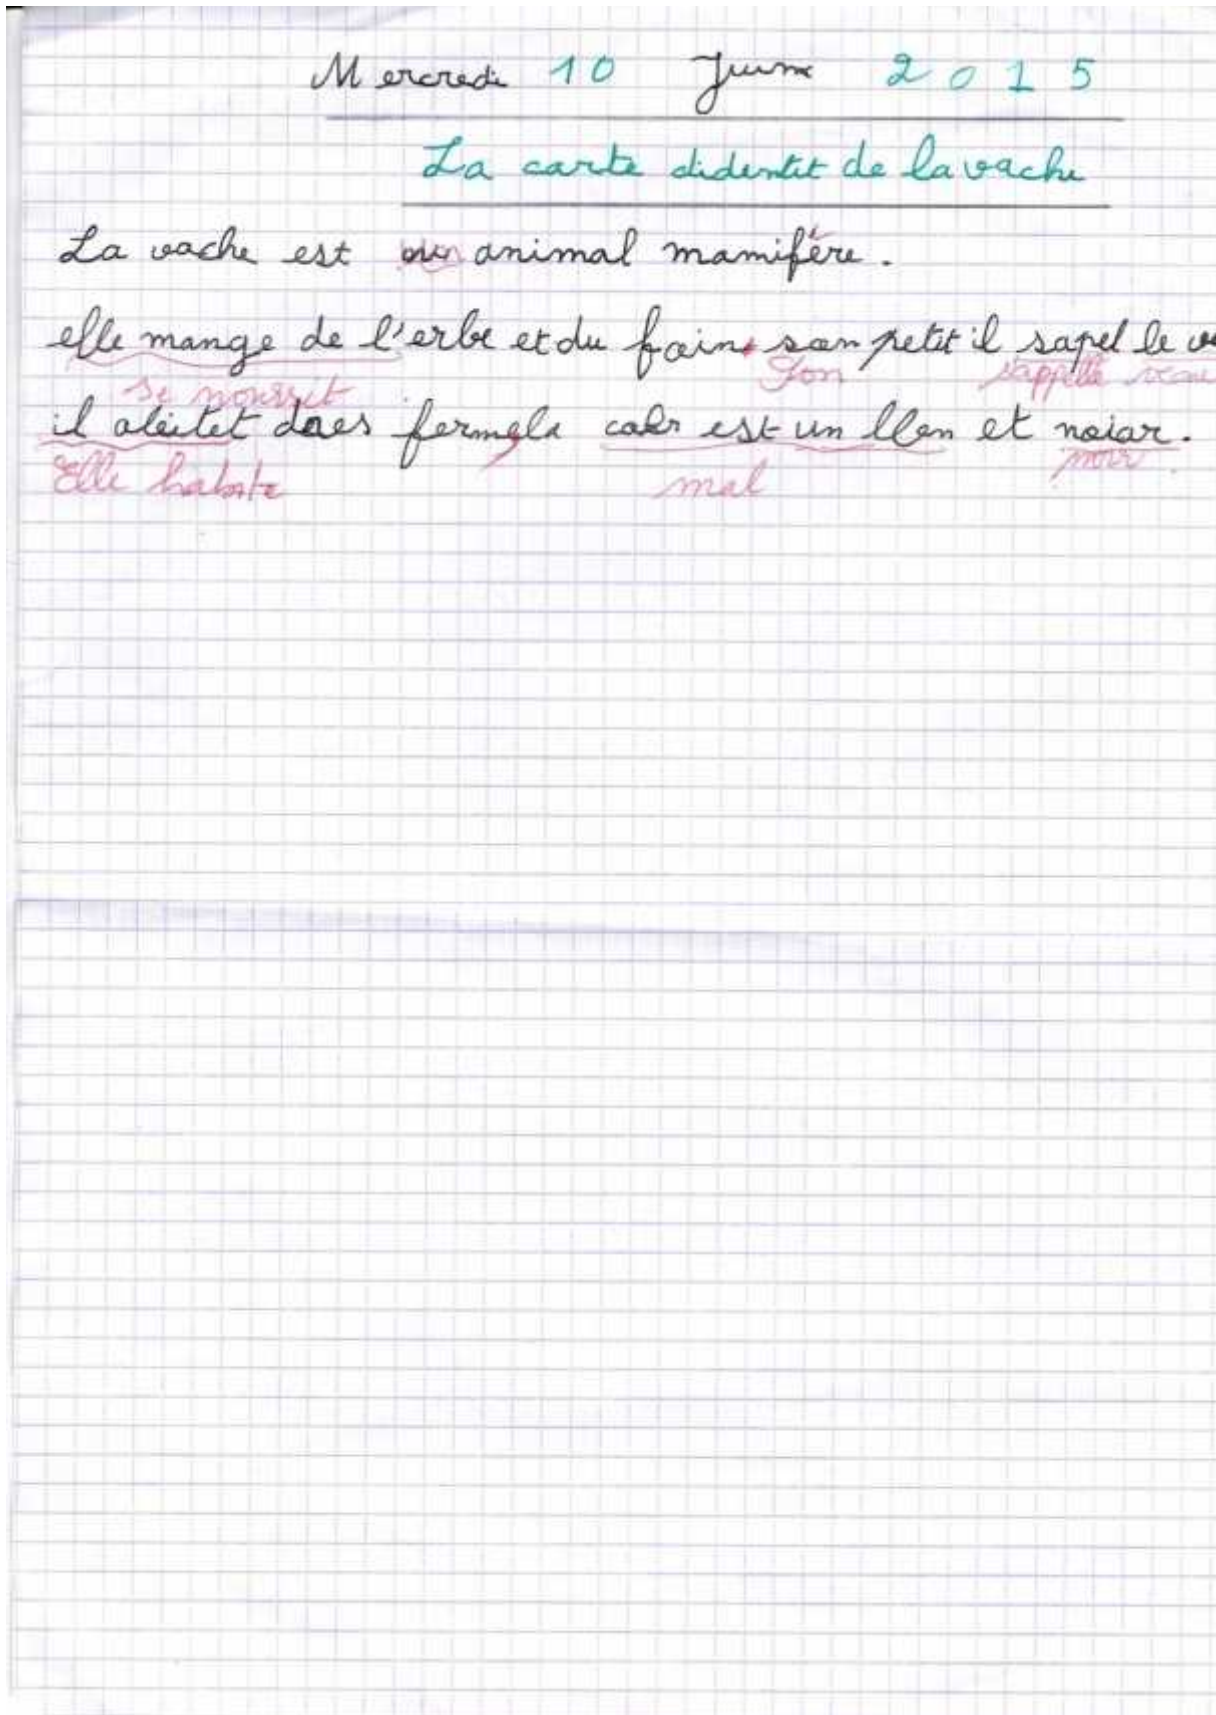 Mercredi 10 Juin 2015
La carte didentit de la vache
La vache est un animal mamifère.
elle mange de l'erbe et du foin. son petit il sapel le
se nourrit Son s'appelle veau
il aleitet daes fermela calr est un llen et noiar.
Elle habite mal noir